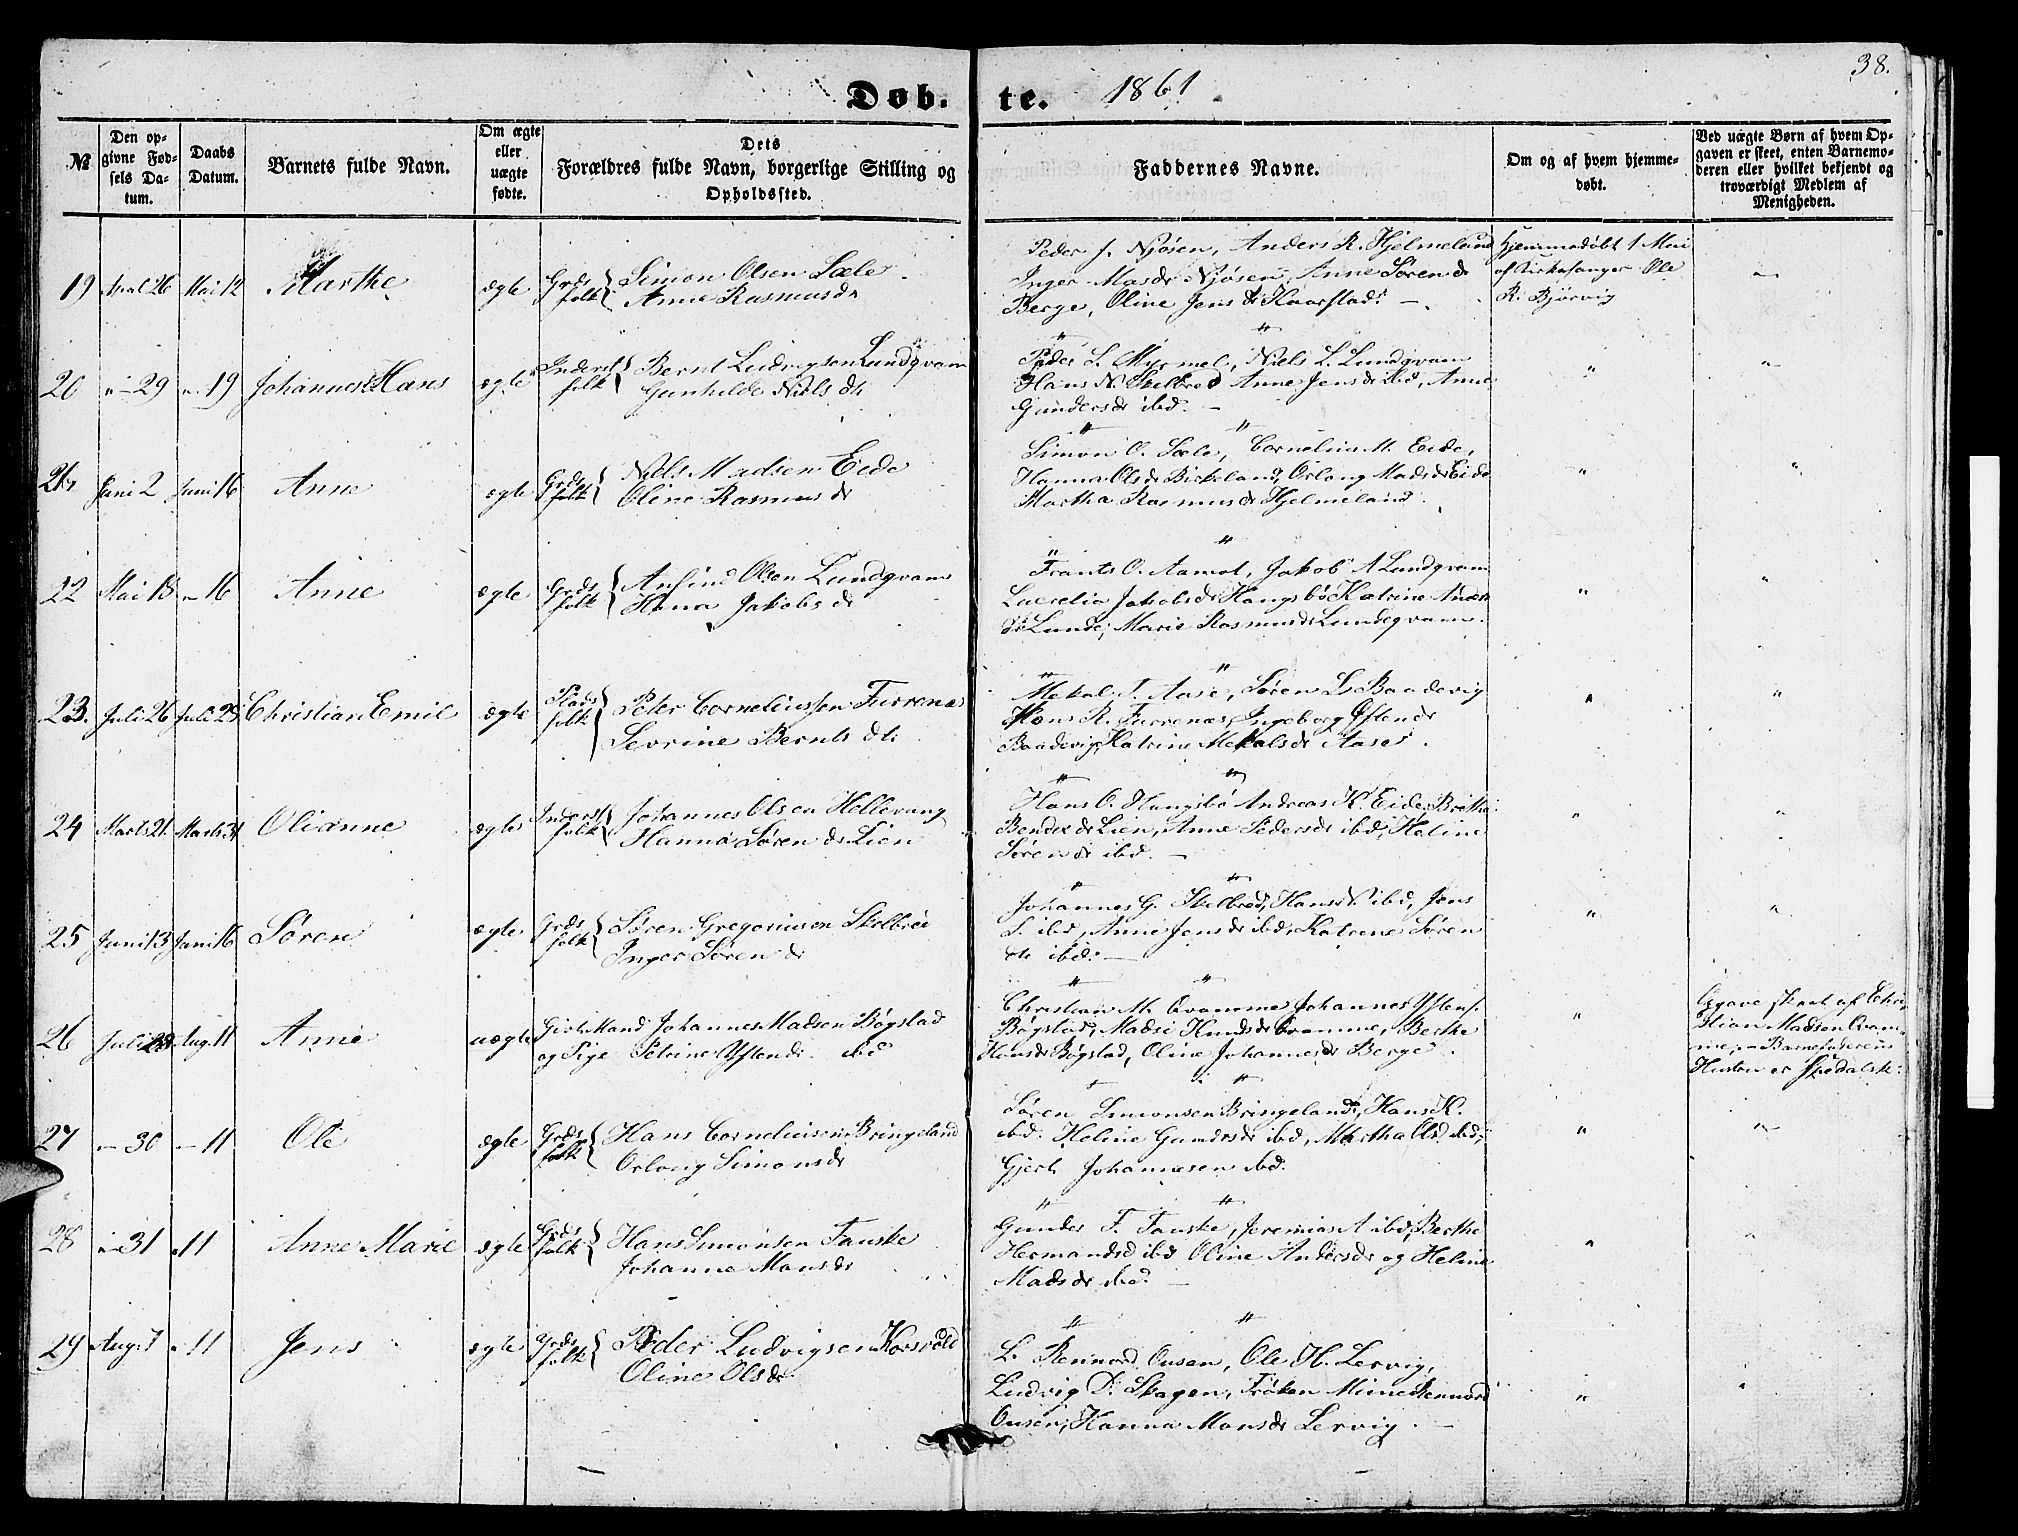 38.
Døb-te. 1861
№
Den opgivne Fødsels Datum.
Daabs Datum.
Barnets fulde Navn.
Om ægte eller uægte fødte.
Dets Forældres fulde Navn, borgerlige Stilling og Opholdssted.
Faddernes Navne.
Om og af hvem hjemmedøbt.
Ved uægte Børn af hvem Opgaven er skeet, enten Barnemoderen eller hvilket bekjendt og troværdigt Medlem af Menigheden.
19 April 26 Mai 12 Marthe ægte Grds folk Simon Olsen Sæle
Anne Rasmusdr
Peder J. Njøsen, Anders R. Hjelmeland
Inger Masdr Njøsen, Anne Sørendr
Berge, Oline Jensdr Kaarstad. –
Hjemmedøbt 1 Mai
af Kirkesanger Ole
R. Bjørvig
20 " 29 " 19 Johannes Hans ægte Inderst folk Bernt Ludvigsen Lundqvam
Gunhilde Niels dtr
Peder L. Myrmel, Niels L. Lundqvam
Hans N. Skilbred Anne Jensdr ibd, Anne
Gundersdr ibd. –
21 Juni 2 Juni 16 Anne ægte Grds folk Niels Madsen Eide
Oline Rasmusdr
Simon O. Sæle, Cornelius M. Eide,
Hanna Olsdr Birkeland, Orlaug Madsdr Eide
Martha Rasmusdr Hjelmeland.
22 Mai 18 " 16 Anne ægte Grds folk Anfind Olsen Lundqvam
Hana Jakobsdr
Frants O. Aamot, Jakob A Lundqvam
Lucrelia Jakobsdr Haugsbø Katrine
dr Lunde, Marie Rasmusdr Lundeqvam.
23. Juli 26 Juli 28 Christian Emil ægte Plads folk Peter Corneliussen Furrenæs
Sevrine Bernts dtr
Mekal T. Aase, Søren L. Baadevig
Hans R. Furrenæs, Ingeborg Østendr
Baadevig, Katrine Mekalsdr Aase.
24 Marts 21. Marts 31 Olianne ægte Inderst folk Johannes Olsen Hellevang
Hanna Sørendr Lien
Hans O. Haugsbø Andreas K. Eide, Brithe
Bendixdr Lien, Anne Pedersdr ibd, Heline
Sørendr ibd. –
25 Juni 13 Juni 16 Søren ægte Grds folk Søren Gregoriusen Skilbred
Inger Sørendr
Johannes G. Skilbred, Hans N. ibd, Jens
S. ibd, Anne Jensdr ibd, Katrine Søren
dtr ibd. –
26 Juli 28. Aug. 11 Anne uægte Givt Mand Johannes Madsen Bøgstad
og Pige Petrine Ystendr ibd
Christian M. Qvamme, Johannes Ystens.
Bøgstad, Madsi Knudsdr Qvamme, Berthe
Hansdr Bøgstad, Oline Johannesdr Berge.
Opgave skeet af Chri-
stian Madsen Qvam-
me, – Barnefaderens
Hustru er Spedalsk.
27 " 30 " 11 Ole ægte Grds folk Hans Corneliusen Bringeland
Orlaug Simonsdr
Søren Simonsen Bringeland, Hans K.
ibd. Heline Gundersdr ibd, Martha Olsd ibd,
Gjert Johannesen ibd.
28 " 31 " 11 Anne Marie ægte Grds folk Hans Simonsen Fauske
Johanne Monsdr
Gunder F. Fauske, Jeremias A ibd, Berthe
Hermandsd ibd Oline Andersdr og Heline
Madsdr ibd. –
29 Aug. 7 " 11 Jens ægte Grds folk Peder Ludvigsen Korsvold
Oline Olsdr.
L. Rennord Ousen, Ole H. Lervig,
Ludvig D. Skagen, Frøken Mime Rennord
Ousen, Hanna Monsdr Lervig. –